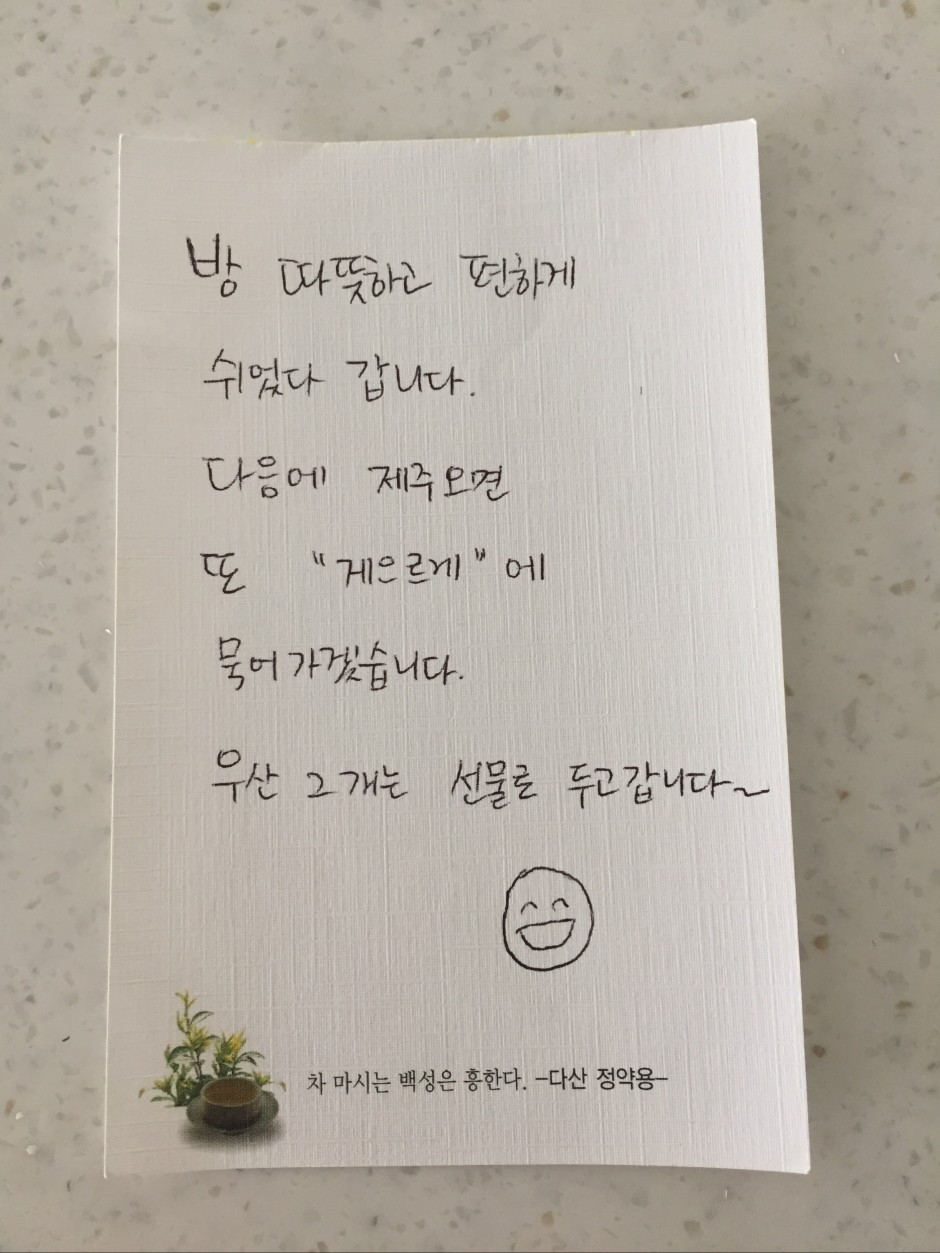 방 따뜻하고 편하게
쉬었다 갑니다.
다음에 제주오면
또 "게으르게"에
묵어가겠습니다.
우산 2개는 선물로 두고갑니다~
차 마시는 백성은 흥한다. -다산 정약용-